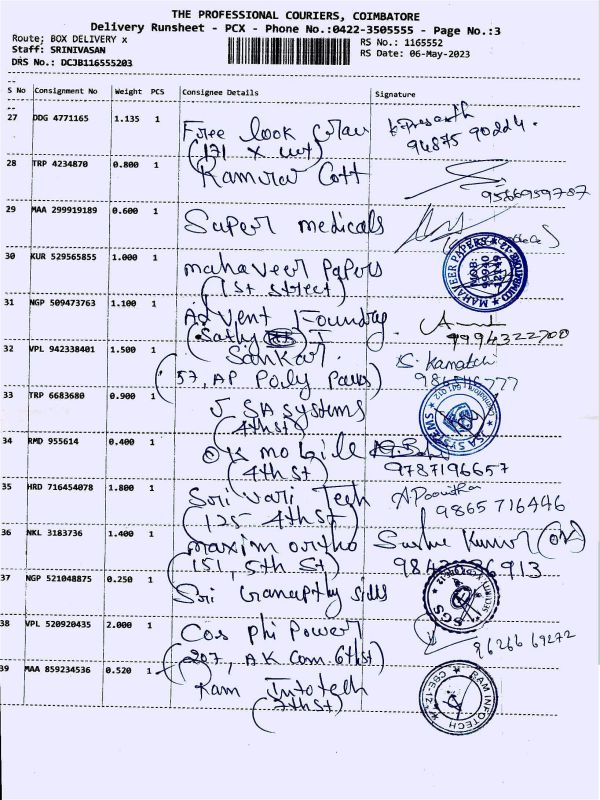 THE PROFESSIONAL COURIERS, COIMBATORE
Delivery Runsheet - PCX - Phone No.:0422-3505555 - Page No.:3
Route; BOX DELIVERY x
RS No.: 1165552
Staff: SRINIVASAN
RS Date: 06-May-2023
DRS No.: DCJB116555203
S No Consignment No Weight PCS Consignee Details Signature
27 DDG 4771165 1.135 1 Free look
94875 90224.
28 TRP 4234870 0.800 1 Cott
9566959787
29 MAA 299919189 0.600 1 Super medicals
30 KUR 529565855 1.000 1 mahaveer papers
(1st street)
MAHAVEER PAPERS
31 NGP 509473763 1.100 1 Advent Foundry
(Sathy
9994322700
32 VPL 942338401 1.500 1 Sankar.
S. Kamatchi
(57, AP Poly
33 TRP 6683680 0.900 1 SA systems
(4th st)
SA SYSTEMS
34 RMD 955614 0.400 1 OK mobile
(4th st)
9787196657
35 HRD 716454078 1.800 1 Sri vari Tech
(125 4th st)
9865 716446
36 NKL 3183736 1.400 1 maxim ortho
(151, 5th St)
37 NGP 521048875 0.250 1 Sri Ganapthy
SGS
38 VPL 520920435 2.000 1 Cos phi Power
(207, AK Com 6th st)
96266 69272
39 MAA 859234536 0.520 1 Ram Infotech
(7th st)
RAM INFOTECH
CBE-12